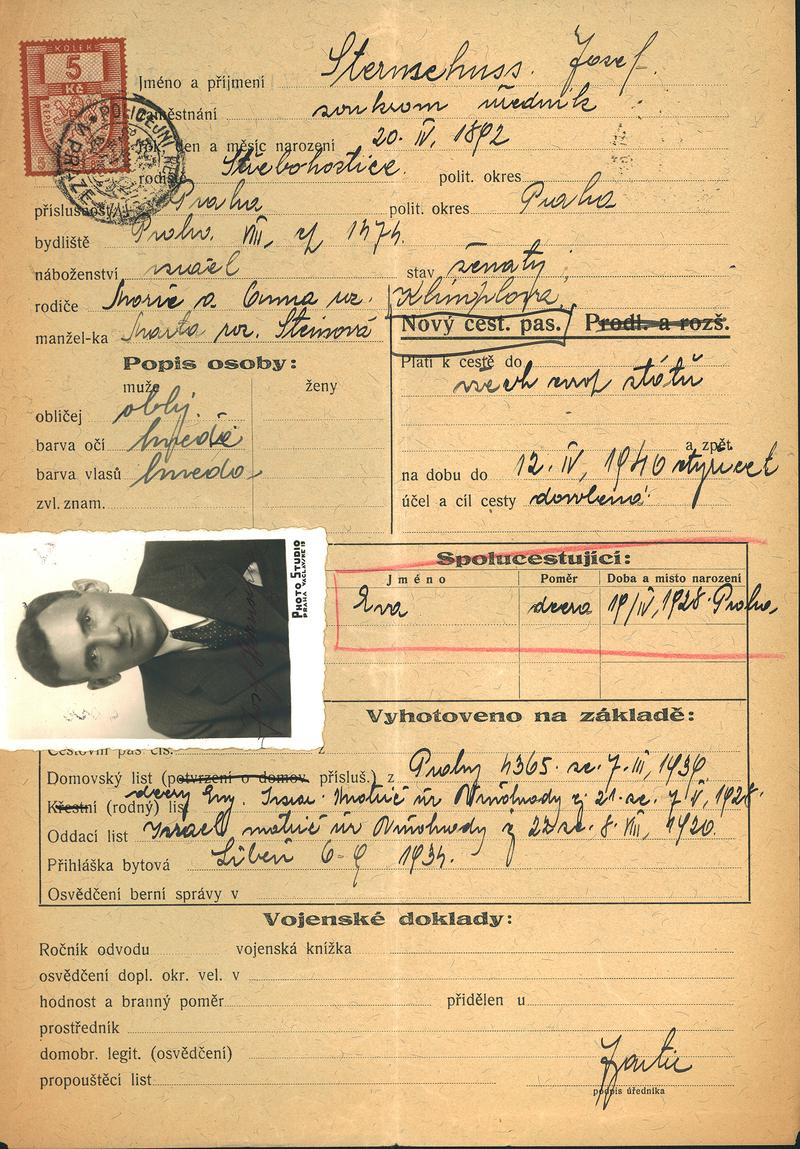 KOLEK
5
Kč
POLICEJNÍ
V PRAZE
Jméno a příjmení Sternschuss Josef.
zaměstnání soukrom úředník
rok, den a měsíc narození 20. IV. 1892
rodiště Střebohostice polit. okres
příslušnost Praha polit. okres Praha
bydliště Praha VIII, 1474.
náboženství israel stav ženatý
rodiče a Anna roz.
manžel-ka Marta roz. Steinová
Nový cest. pas. Prodl. a rozš.
Popis osoby:
muže ženy
obličej oblý.
barva očí hnedé
barva vlasů hnedo
zvl. znam.
Platí k cestě do
všech evrop států
a zpět
na dobu do 12. IV. 1940 čtyřicet
účel a cíl cesty dovolená
PHOTO STUDIO
PRAHA VÁCLAVSKÉ 19
Spolucestující:
Jméno Poměr Doba a místo narození
Eva dcera 19/IV, 1928 Praha,
Vyhotoveno na základě:
Cestovní pas čís. z
Domovský list (potvrzení o domov. přísluš.) z Prahy 4365 ze 7. III, 1936
dcery Evy. matrič úr Vinohrady z 21. ze 7 V, 1928.
Křestní (rodný) list
Oddací list Israel matrič úr Vinohrady z 8. VIII, 1920.
Přihláška bytová Libeň 1934.
Osvědčení berní správy v
Vojenské doklady:
Ročník odvodu vojenská knížka
osvědčení dopl. okr. vel. v
hodnost a branný poměr přidělen u
prostředník
domobr. legit. (osvědčení)
propouštěcí list
podpis úředníka